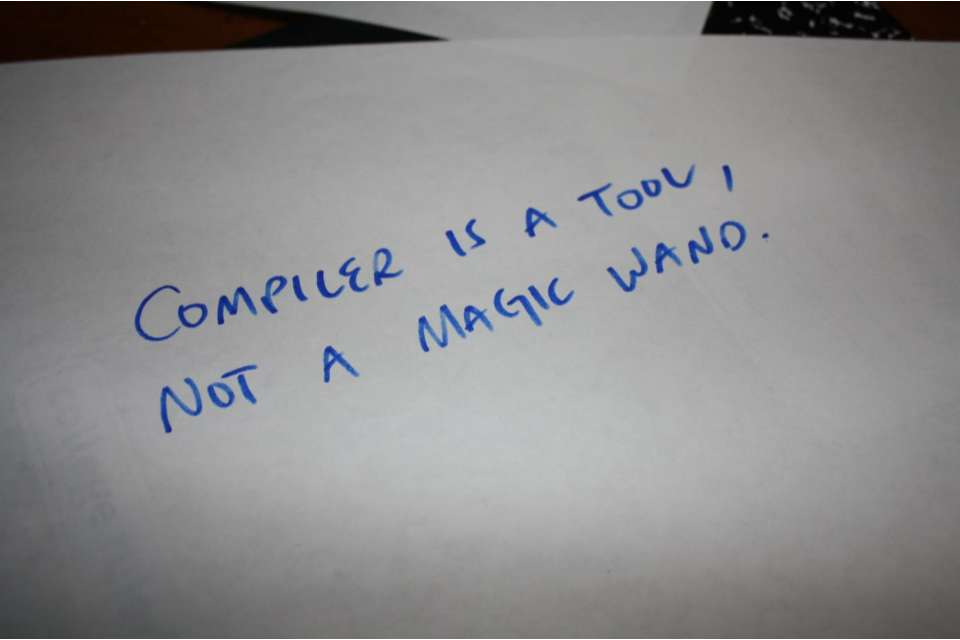 COMPILER IS A TOOL,
NOT A MAGIC WAND.